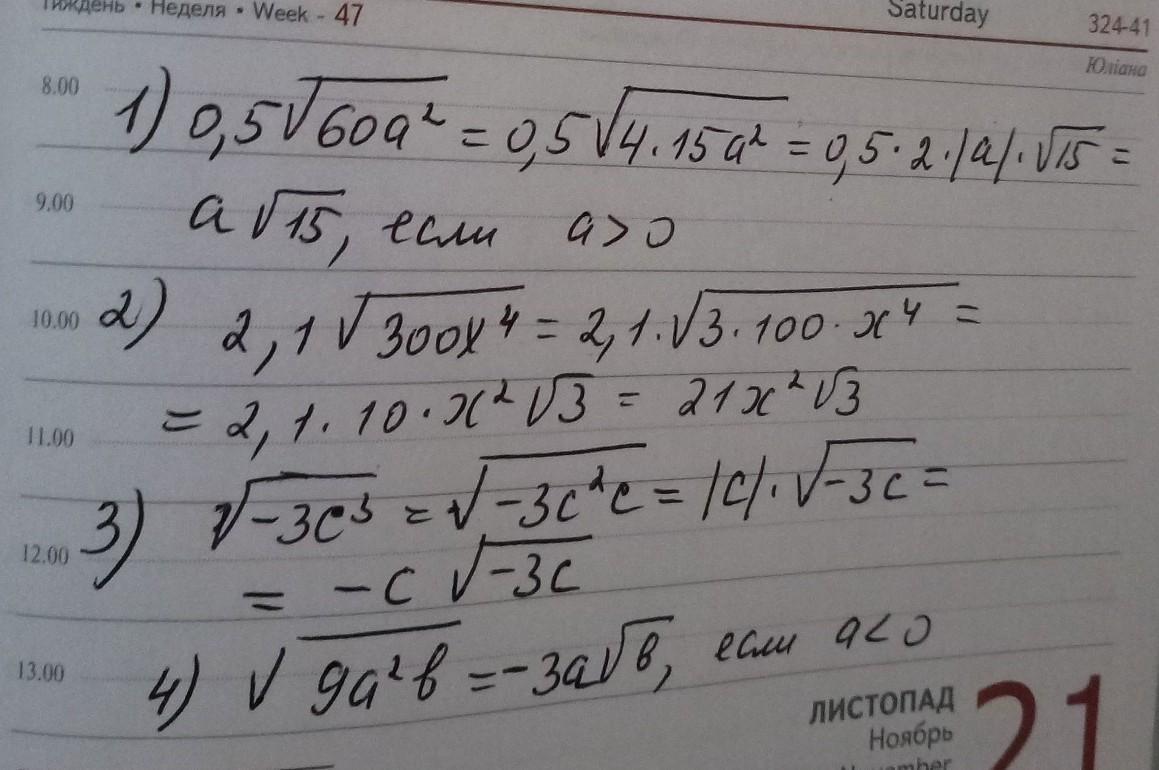 Тиждень • Неделя • Week - 47
Saturday
324-41
Юліана
8.00
1) 0,5√60a² = 0,5√4·15a² = 0,5·2·|a|·√15 =
9.00
a√15, если a>0
10.00
2) 2,1√300x⁴ = 2,1·√3·100·x⁴ =
= 2,1·10·x²√3 = 21x²√3
11.00
3) √-3c³ = √-3c²c = |c|·√-3c =
12.00
= -c√-3c
13.00
4) √9a²b = -3a√b, если a<0
ЛИСТОПАД
Ноябрь
November
21